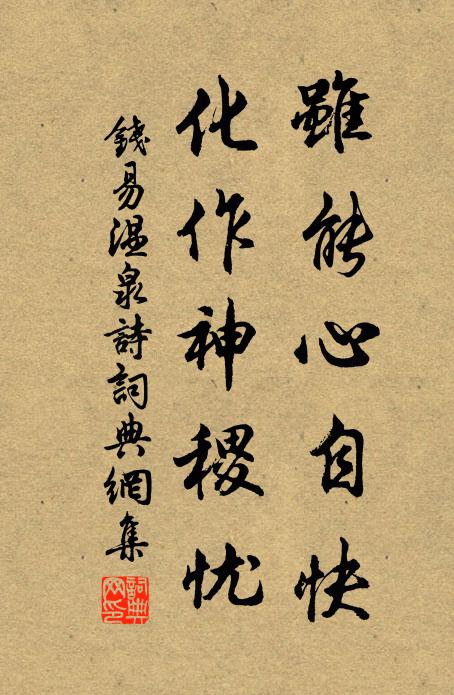 雖能心自快
化作神稷忧
錢易温泉詩詞典網集
詞典网印